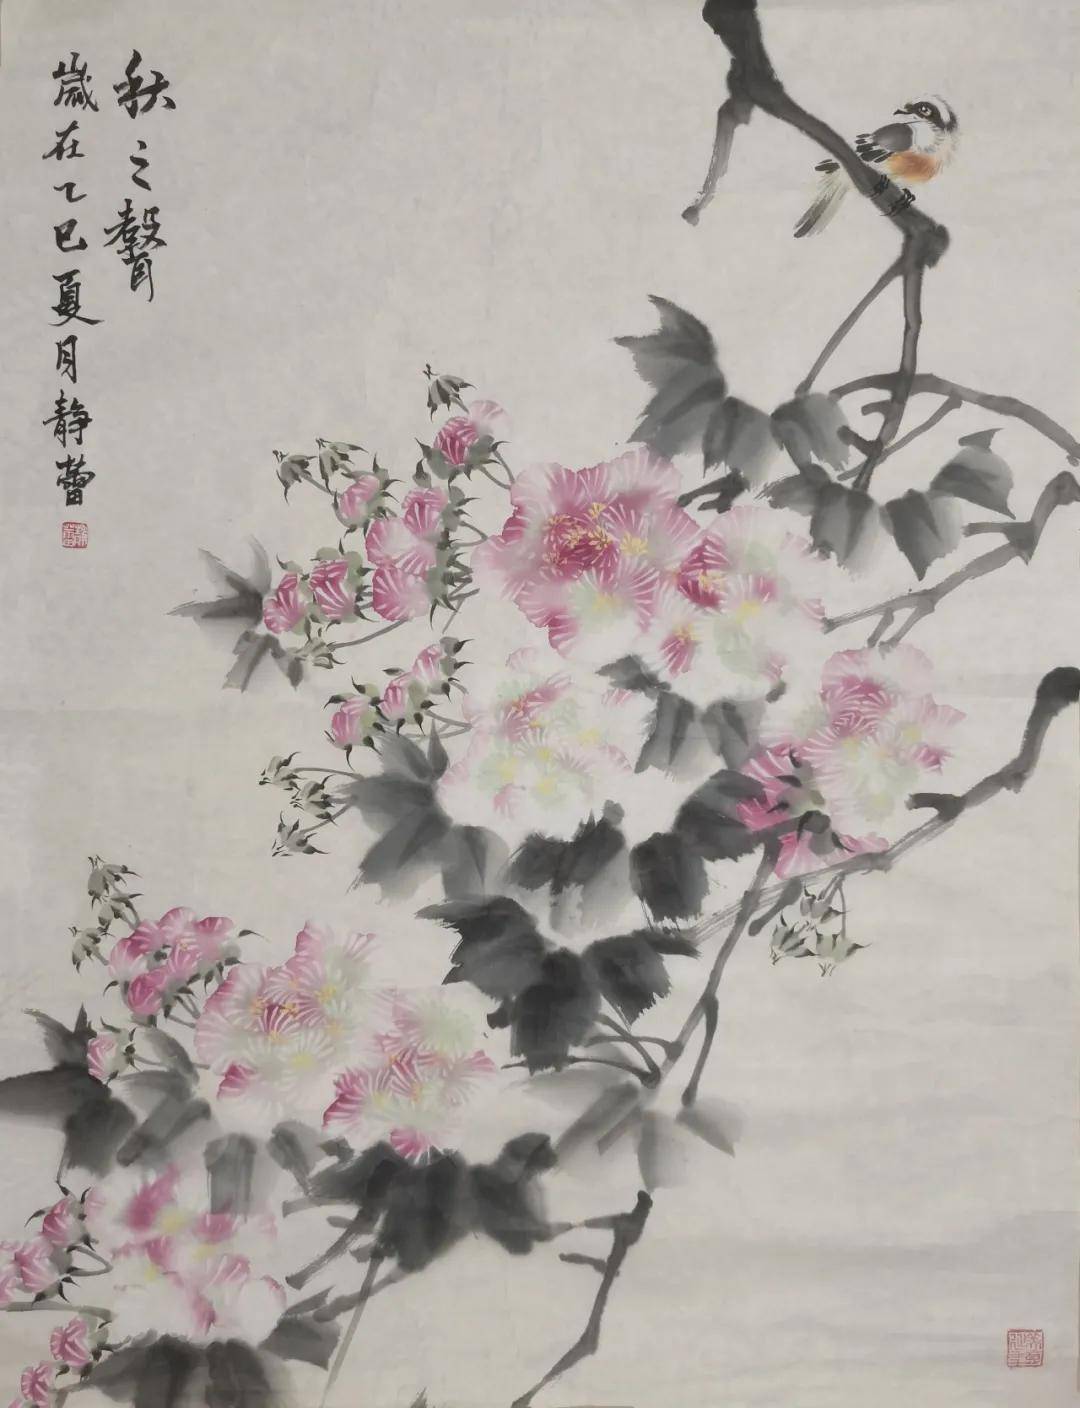 秋之聲
歲在乙巳夏月静蕾